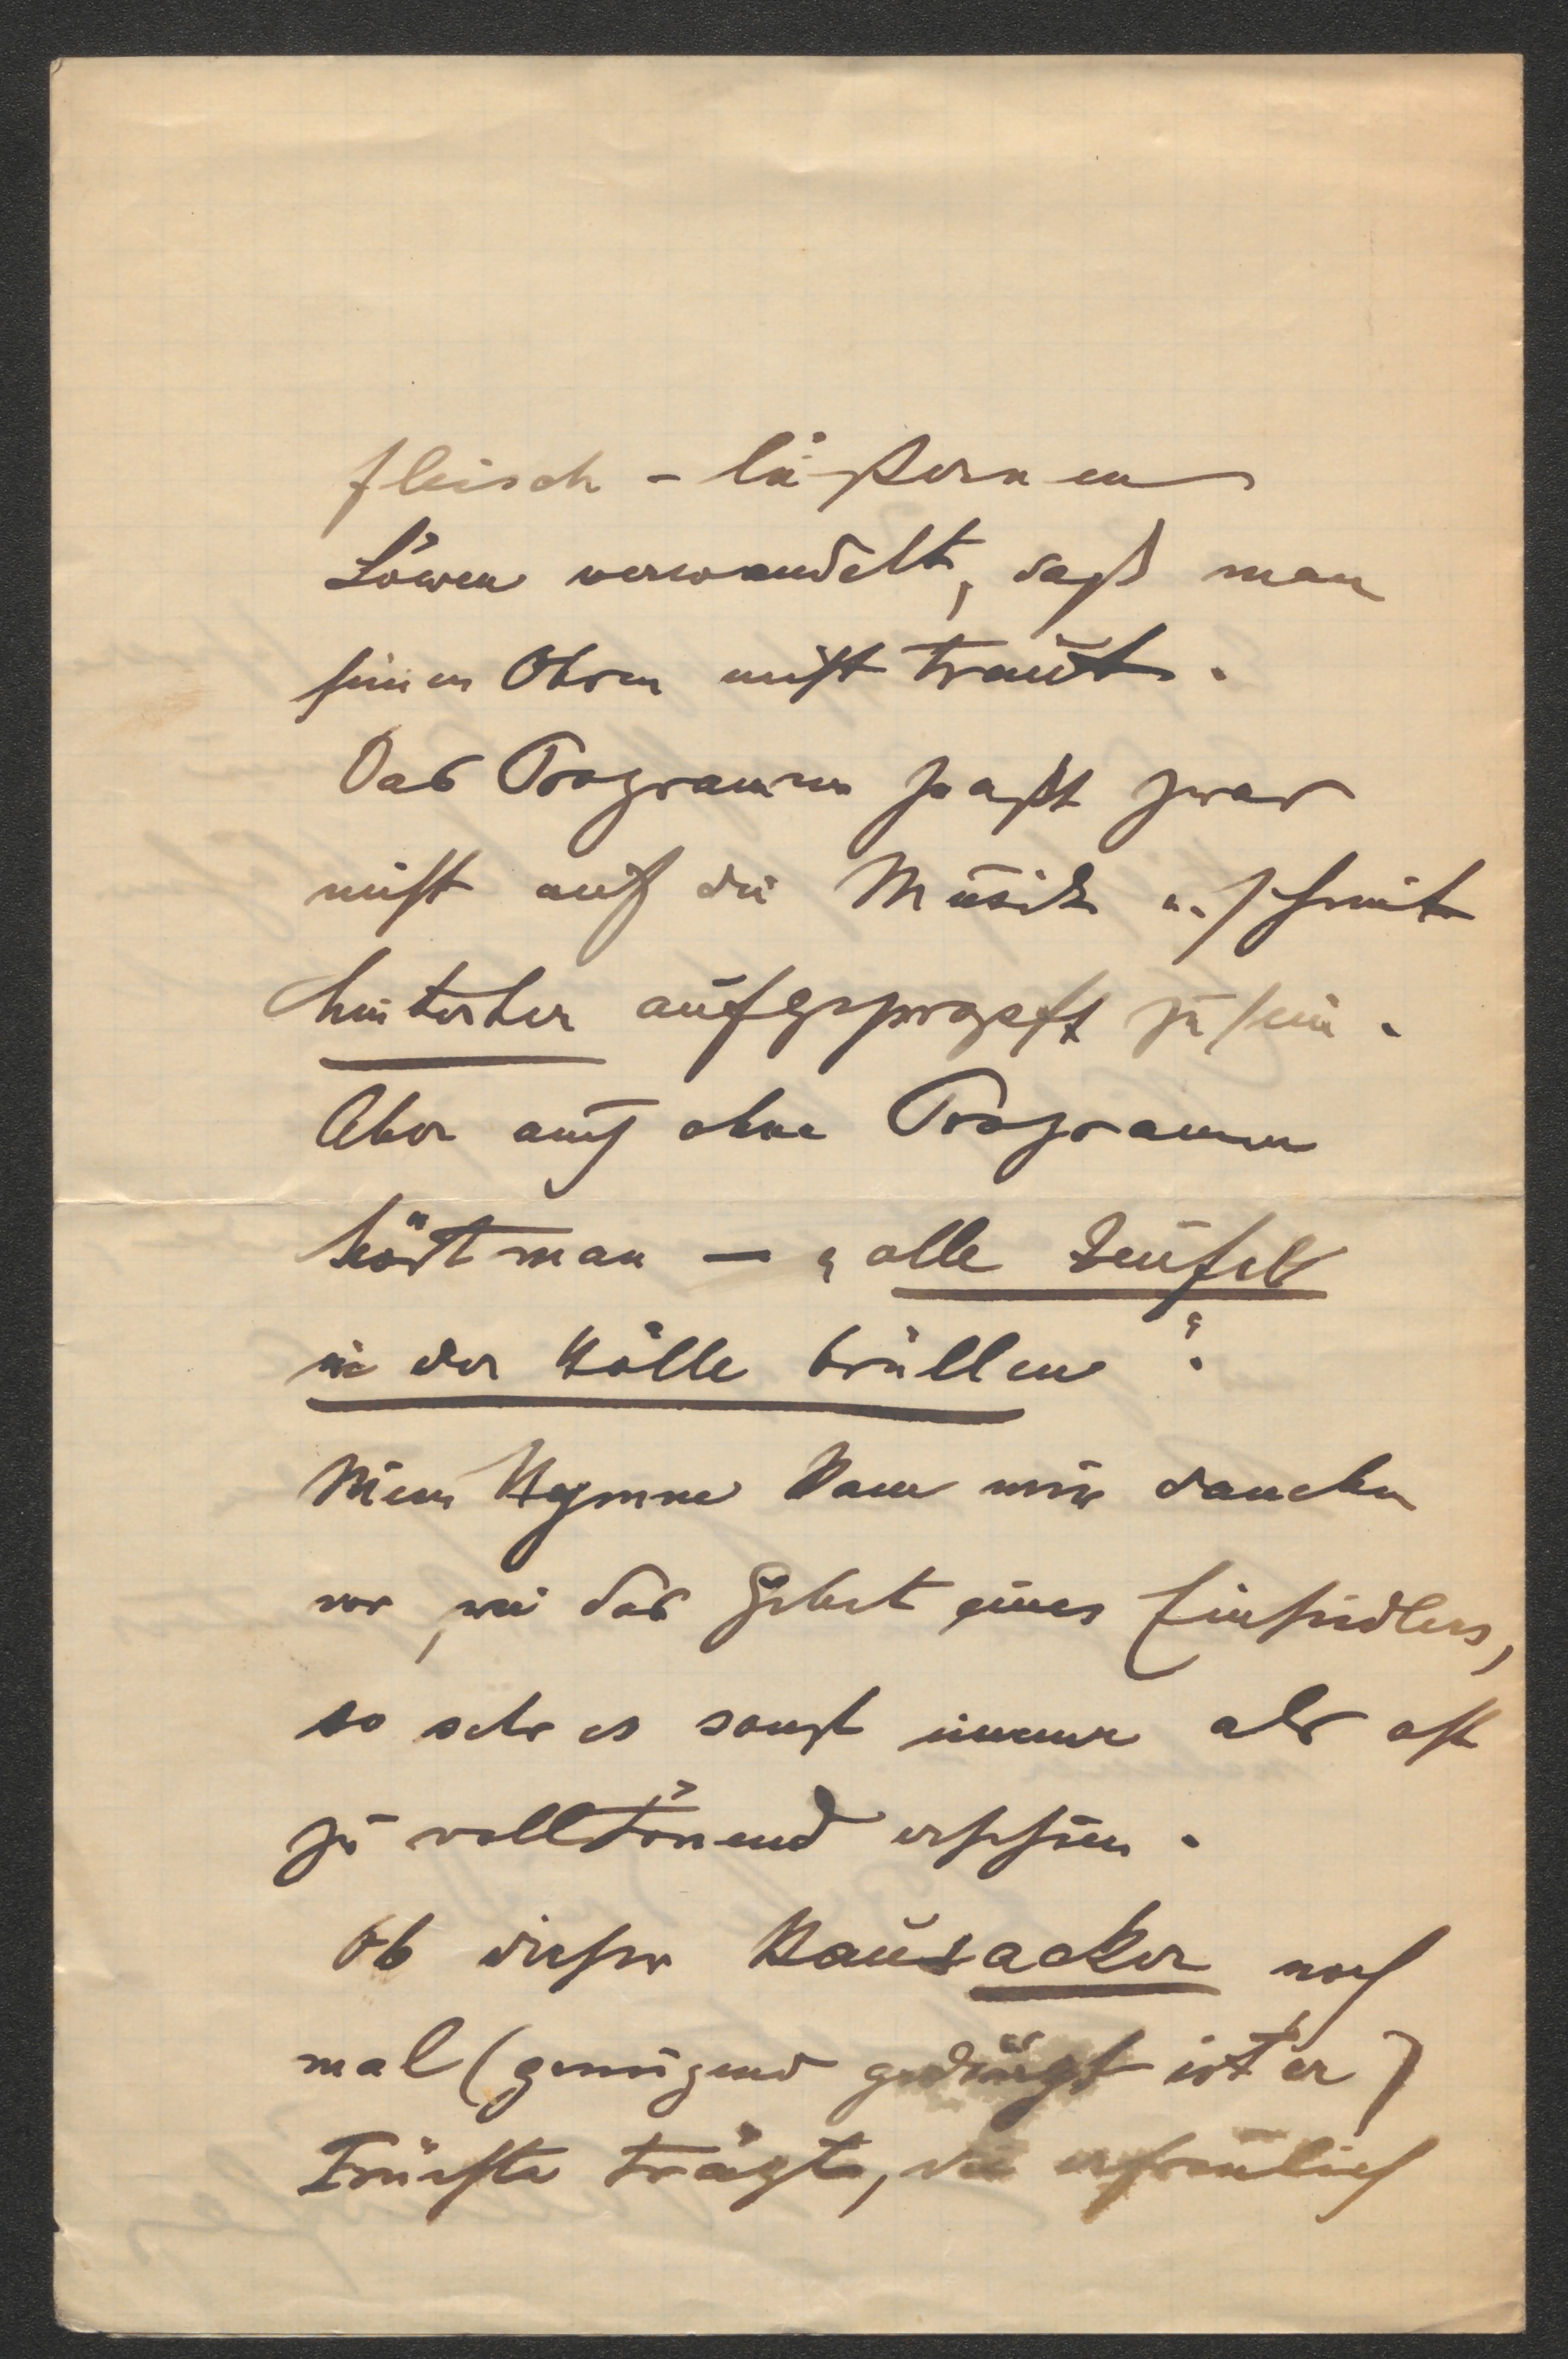 fleisch-lüsternen
Löwen verwandelt, daß man
seinen Ohren nicht traut.
Das Programm paßt zwar
nicht auf die Musik u. scheint
hinterher aufgepropft zu sein.
Aber auch ohne Programm
hört man — „alle Teufel
in der Hölle brüllen“.
Meine Hymne kam mir daneben
vor, wie das Gebet eines Einsiedlers,
so sehr es sonst immer als oft
zu volltönend erschien.
Ob dieser Hausacker noch
mal (genügend gedüngt ist er)
Früchte trägt, die erfreulich